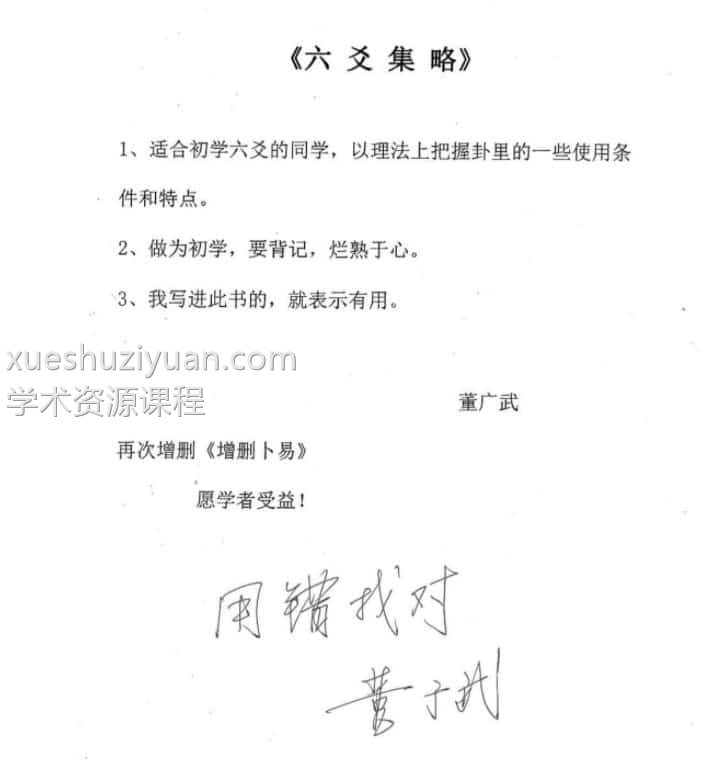 《六爻集略》
1、适合初学六爻的同学，以理法上把握卦里的一些使用条
件和特点。
2、做为初学，要背记，烂熟于心。
3、我写进此书的，就表示有用。
xueshuziyuan.com
学术资源课程
董广武
再次增删《增删卜易》
愿学者受益！
用错找对
董广武